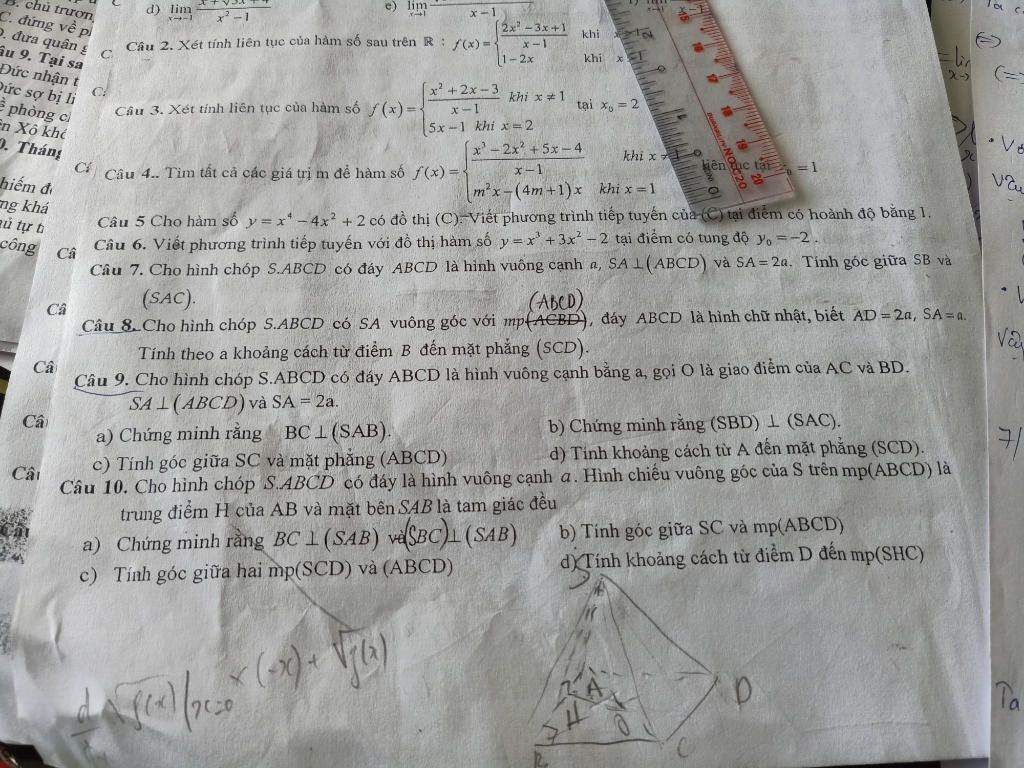 B. chủ trươn
C. đứng về p
D. đưa quân
âu 9. Tại sa
Đức nhận t
Đức sợ bị li
ề phòng c
ên Xô khó
0. Tháng
hiếm đ
ng khá
ủ tự t
công
d) lim x→-1 x² − 1
e) lim x→1 x − 1
Câu 2. Xét tính liên tục của hàm số sau trên ℝ : f(x) = { (2x² − 3x + 1)/(x − 1) khi
1 − 2x khi
Câu 3. Xét tính liên tục của hàm số f(x) = { (x² + 2x − 3)/(x − 1) khi x ≠ 1 tại x₀ = 2
5x − 1 khi x = 2
Câu 4.. Tìm tất cả các giá trị m để hàm số f(x) = { (x³ − 2x² + 5x − 4)/(x − 1) khi x liên tục tại = 1
m²x − (4m + 1)x khi x = 1
Câu 5 Cho hàm số y = x⁴ − 4x² + 2 có đồ thị (C). Viết phương trình tiếp tuyến của (C) tại điểm có hoành độ bằng 1.
Câu 6. Viết phương trình tiếp tuyến với đồ thị hàm số y = x³ + 3x² − 2 tại điểm có tung độ y₀ = −2 .
Câu 7. Cho hình chóp S.ABCD có đáy ABCD là hình vuông cạnh a, SA ⊥ (ABCD) và SA = 2a. Tính góc giữa SB và
(SAC).
(ABCD)
Câu 8. Cho hình chóp S.ABCD có SA vuông góc với mp(ACBD), đáy ABCD là hình chữ nhật, biết AD = 2a, SA = a.
Tính theo a khoảng cách từ điểm B đến mặt phẳng (SCD).
Câu 9. Cho hình chóp S.ABCD có đáy ABCD là hình vuông cạnh bằng a, gọi O là giao điểm của AC và BD.
SA ⊥ (ABCD) và SA = 2a.
a) Chứng minh rằng BC ⊥ (SAB).
b) Chứng minh rằng (SBD) ⊥ (SAC).
c) Tính góc giữa SC và mặt phẳng (ABCD)
d) Tính khoảng cách từ A đến mặt phẳng (SCD).
Câu 10. Cho hình chóp S.ABCD có đáy là hình vuông cạnh a. Hình chiếu vuông góc của S trên mp(ABCD) là
trung điểm H của AB và mặt bên SAB là tam giác đều
a) Chứng minh rằng BC ⊥ (SAB) và (SBC) ⊥ (SAB)
b) Tính góc giữa SC và mp(ABCD)
c) Tính góc giữa hai mp(SCD) và (ABCD)
d) Tính khoảng cách từ điểm D đến mp(SHC)
A
D
H
O
B
C
7/
Ta